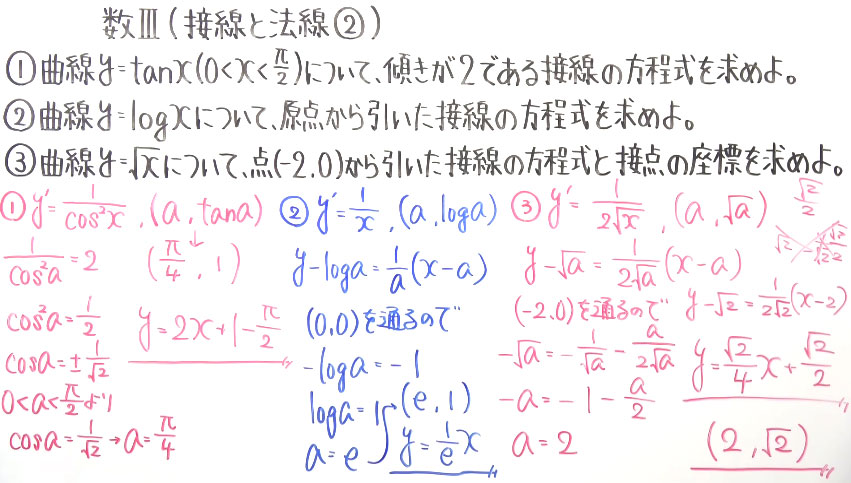 数Ⅲ(接線と法線②)
①曲線y=tanx(0<x<π/2)について、傾きが2である接線の方程式を求めよ。
②曲線y=logxについて、原点から引いた接線の方程式を求めよ。
③曲線y=√xについて、点(-2,0)から引いた接線の方程式と接点の座標を求めよ。
① y'=1/cos²x , (a, tana)
1/cos²a=2
(π/4, 1)
cos²a=1/2
cosa=±1/√2
0<a<π/2より
cosa=1/√2→a=π/4
y=2x+1-π/2
② y'=1/x , (a, loga)
y-loga=1/a(x-a)
(0,0)を通るので
-loga=-1
loga=1
a=e
(e, 1)
y=1/e x
③ y'=1/2√x , (a, √a)
y-√a=1/2√a(x-a)
(-2,0)を通るので
-√a=-1/√a-a/2√a
-a=-1-a/2
a=2
√2/2
y-√2=1/2√2(x-2)
y=√2/4 x+√2/2
(2, √2)